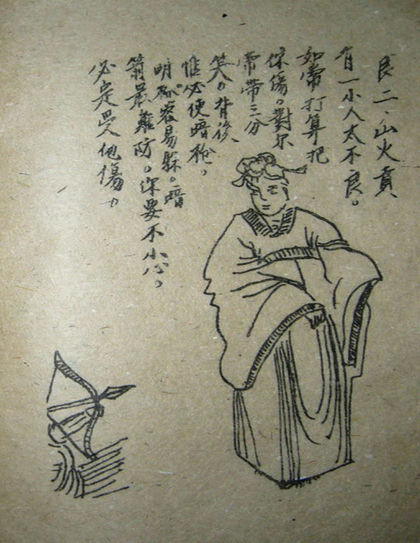 艮二、山火賁
有一小人太不良。
如常打算把
保傷。對尔
常帶三分
笑。背後
惟必使暗枪，
明砍容易躲。暗
箭最難防。你要不小心。
必定受他傷。